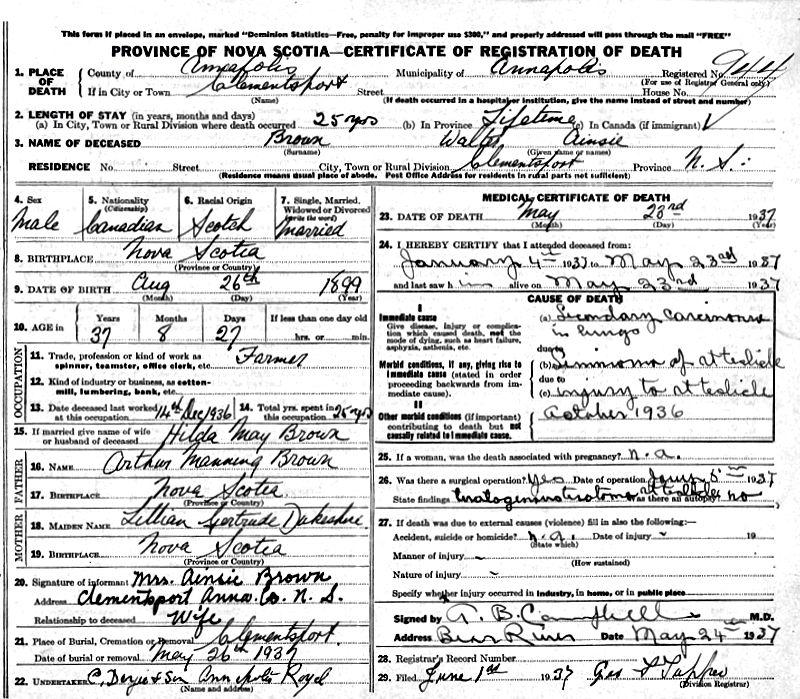 This form if placed in an envelope, marked "Dominion Statistics—Free, penalty for improper use $300," and properly addressed will pass through the mail "FREE"
PROVINCE OF NOVA SCOTIA—CERTIFICATE OF REGISTRATION OF DEATH
1. PLACE OF DEATH County of Annapolis Municipality of Annapolis Registered No.
(For use of Registrar General only.)
If in City or Town Clementsport Street House No.
(Name) (If death occurred in a hospital or institution, give the name instead of street and number)
2. LENGTH OF STAY (in years, months and days)
(a) In City, Town or Rural Division where death occurred 25 yrs (b) In Province Lifetime (c) In Canada (if immigrant) ✓
3. NAME OF DECEASED Brown Walter Ainsie
(Surname) (Given name or names)
RESIDENCE No. Street City, Town or Rural Division Clementsport Province N. S.
(Residence means usual place of abode. Post Office Address for residents in rural parts not sufficient)
4. Sex 5. Nationality (Citizenship) 6. Racial Origin 7. Single, Married, Widowed or Divorced (write the word)
Male Canadian Scotch Married
8. BIRTHPLACE Nova Scotia
(Province or Country)
9. DATE OF BIRTH Aug 26th 1899
(Month) (Day) (Year)
10. AGE in Years Months Days If less than one day old
37 8 27 hrs. or min.
OCCUPATION
11. Trade, profession or kind of work as spinner, teamster, office clerk, etc. Farmer
12. Kind of industry or business, as cotton-mill, lumbering, bank, etc.
13. Date deceased last worked at this occupation. 14th Dec 1936 14. Total yrs. spent in this occupation. 25 yrs
15. If married give name of wife or husband of deceased Hilda May Brown
FATHER
16. NAME Arthur Manning Brown
17. BIRTHPLACE Nova Scotia
(Province or Country)
MOTHER
18. MAIDEN NAME Lillian Gertrude Dukeshire
19. BIRTHPLACE Nova Scotia
(Province or Country)
20. Signature of informant Mrs. Ainsie Brown
Address Clementsport Anna. Co. N. S.
Relationship to deceased Wife
21. Place of Burial, Cremation or Removal Clementsport
Date of burial or removal May 26th 1937
22. UNDERTAKER & Son Annapolis Royal
(Name and address)
MEDICAL CERTIFICATE OF DEATH
23. DATE OF DEATH May 23rd 1937
(Month) (Day) (Year)
24. I HEREBY CERTIFY that I attended deceased from:
January 4th 1937 to May 23rd 1937
and last saw him alive on May 23rd 1937
CAUSE OF DEATH
I
Immediate cause
Give disease, injury or complication which caused death, not the mode of dying, such as heart failure, asphyxia, asthenia, etc.
(a) Secondary carcinoma in lungs
due to
Morbid conditions, if any, giving rise to immediate cause (stated in order proceeding backwards from immediate cause).
(b) of rt testicle
due to
(c) injury to rt testicle
October 1936
II
Other morbid conditions (if important) contributing to death but not causally related to immediate cause.
25. If a woman, was the death associated with pregnancy? n. a.
26. Was there a surgical operation? Yes Date of operation Jany 5th 1937
State findings rt testicle Was there an autopsy? no
27. If death was due to external causes (violence) fill in also the following:—
Accident, suicide or homicide? n. a. Date of injury 19
(State which)
Manner of injury
(How sustained)
Nature of injury
Specify whether injury occurred in industry, in home, or in public place
Signed by A. B. Campbell M.D.
Address Bear River Date May 24th 1937
28. Registrar's Record Number
29. Filed June 1st 1937 Geo Tupper
(Division Registrar)